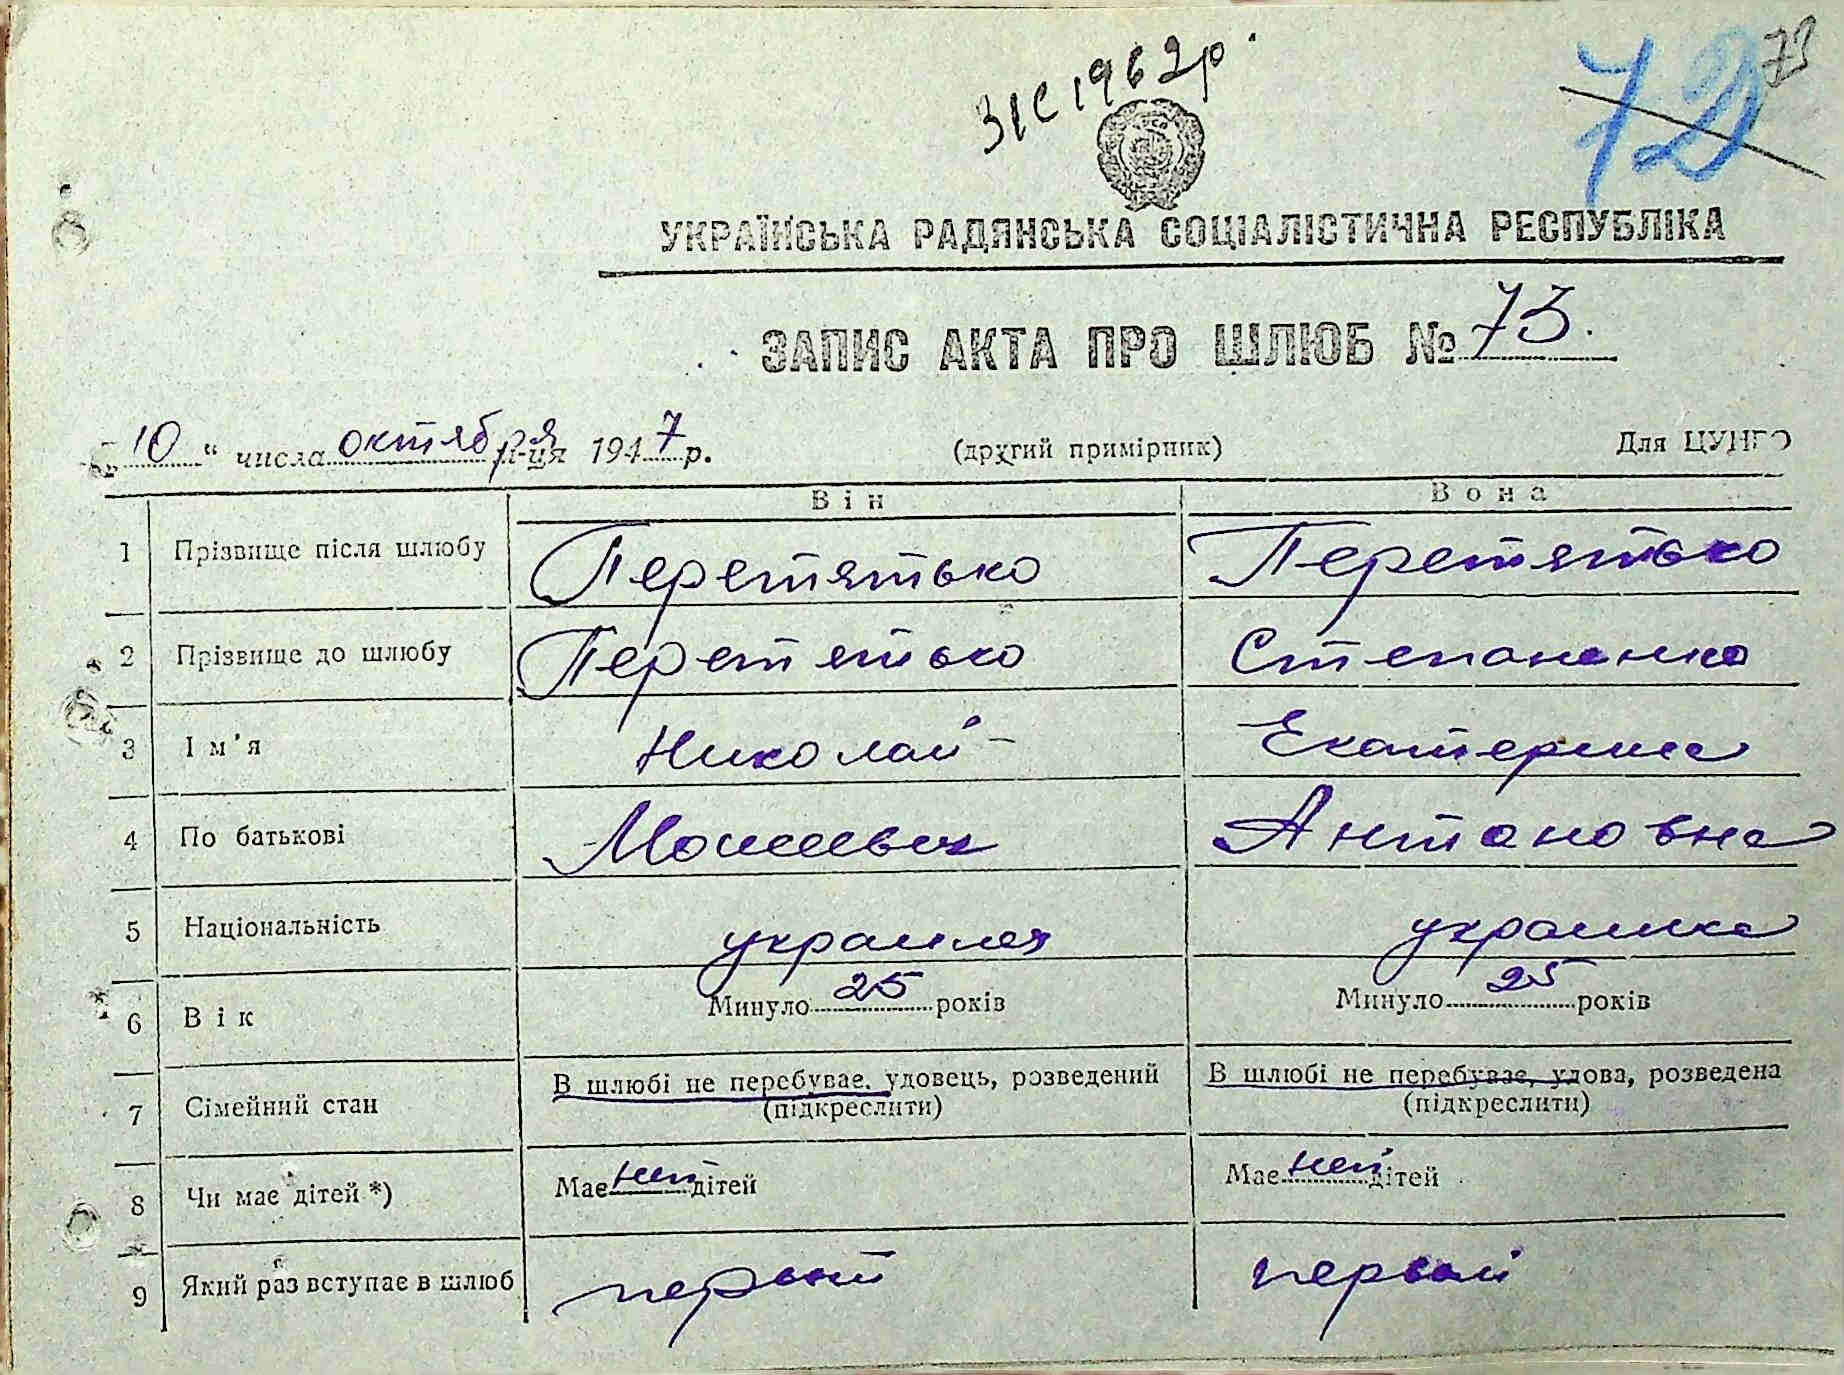 31 С 1962 р.
72 73
УКРАЇНСЬКА РАДЯНСЬКА СОЦІАЛІСТИЧНА РЕСПУБЛІКА
ЗАПИС АКТА ПРО ШЛЮБ № 73.
„10“ числа октября м-ця 1947 р. (другий примірник) Для ЦУНГО
Він Вона
1 Прізвище після шлюбу Перетятько Перетятько
2 Прізвище до шлюбу Перетятько Степаненко
3 Ім'я Николай Екатерина
4 По батькові Моисеевич Антоновна
5 Національність украинец украинка
6 Вік Минуло 25 років Минуло 25 років
7 Сімейний стан В шлюбі не перебуває, удовець, розведений В шлюбі не перебуває, удова, розведена
(підкреслити) (підкреслити)
8 Чи має дітей *) Має нет дітей Має нет дітей
9 Який раз вступає в шлюб первый первый